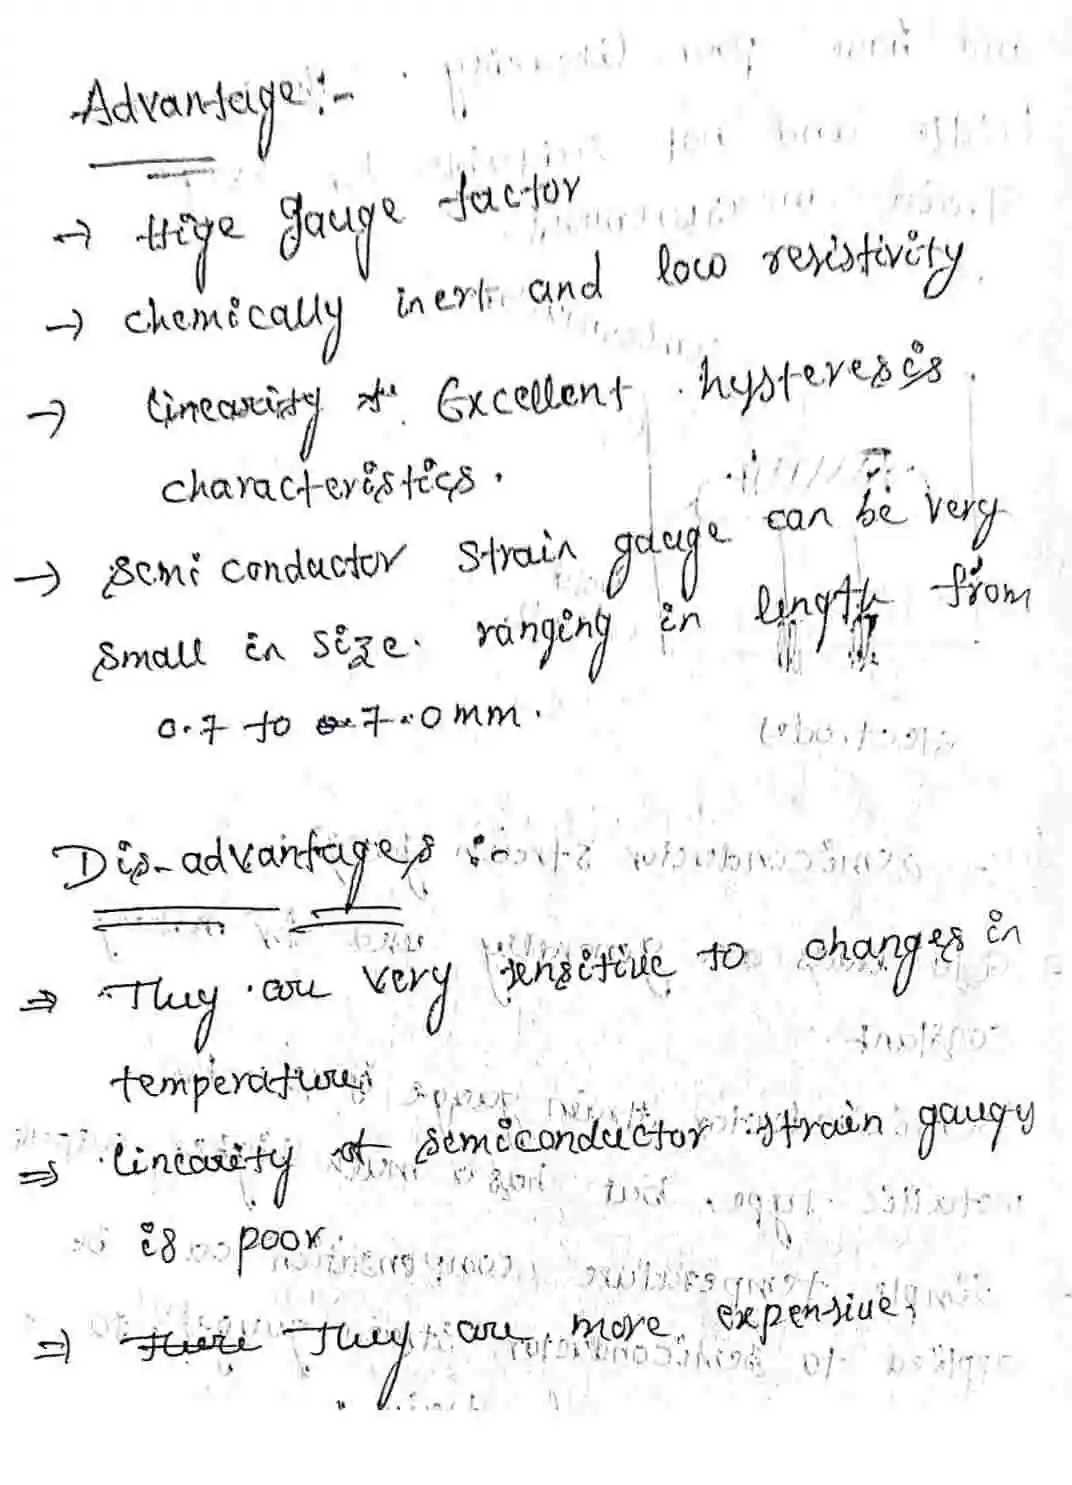 Advantage:-
→ Hige gauge factor
→ chemically inert and low resistivity.
→ linearity Excellent hysteresis
characteristics.
→ Semi conductor Strain gauge can be very
small in size. ranging in length from
0.7 to 7.0mm.
Dis-advantages :-
⇒ They are very sensitive to changes in
temperature.
⇒ linearity of semiconductor strain gaugy
is poor.
⇒ There They are more expensive.